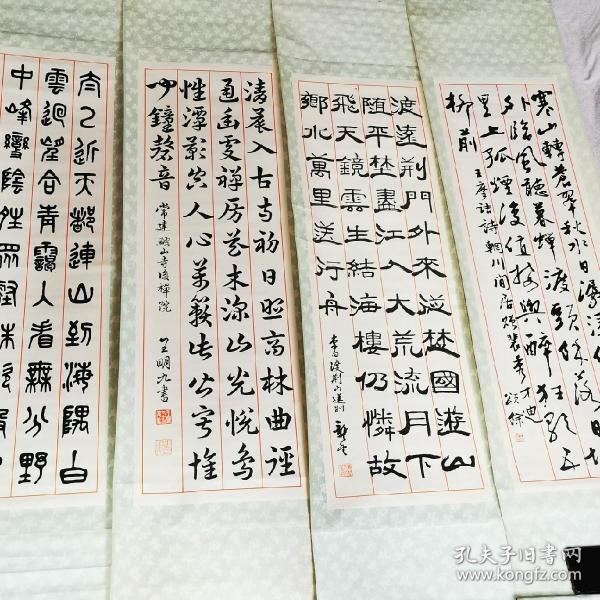 寒山轉蒼翠秋水日潺湲
外臨風聽暮蟬渡頭餘落日墟
里上孤煙復值接輿醉狂歌五
柳前
王摩詰詩輞川閒居贈裴秀才迪
渡遠荊門外來從楚國遊山
隨平埜盡江入大荒流月下
飛天鏡雲生結海樓仍憐故
鄉水萬里送行舟
李白渡荊門送別
清晨入古寺初日照高林曲徑
通幽處禪房花木深山光悅鳥
性潭影空人心萬籟此寂惟
聞鐘磬音
常建破山寺後禪院
王明九書
太乙近天都連山到海隅白
雲迴望合青靄入看無分野
中峰變陰陽眾壑殊欲投
孔夫子旧书网
www.kongfz.com